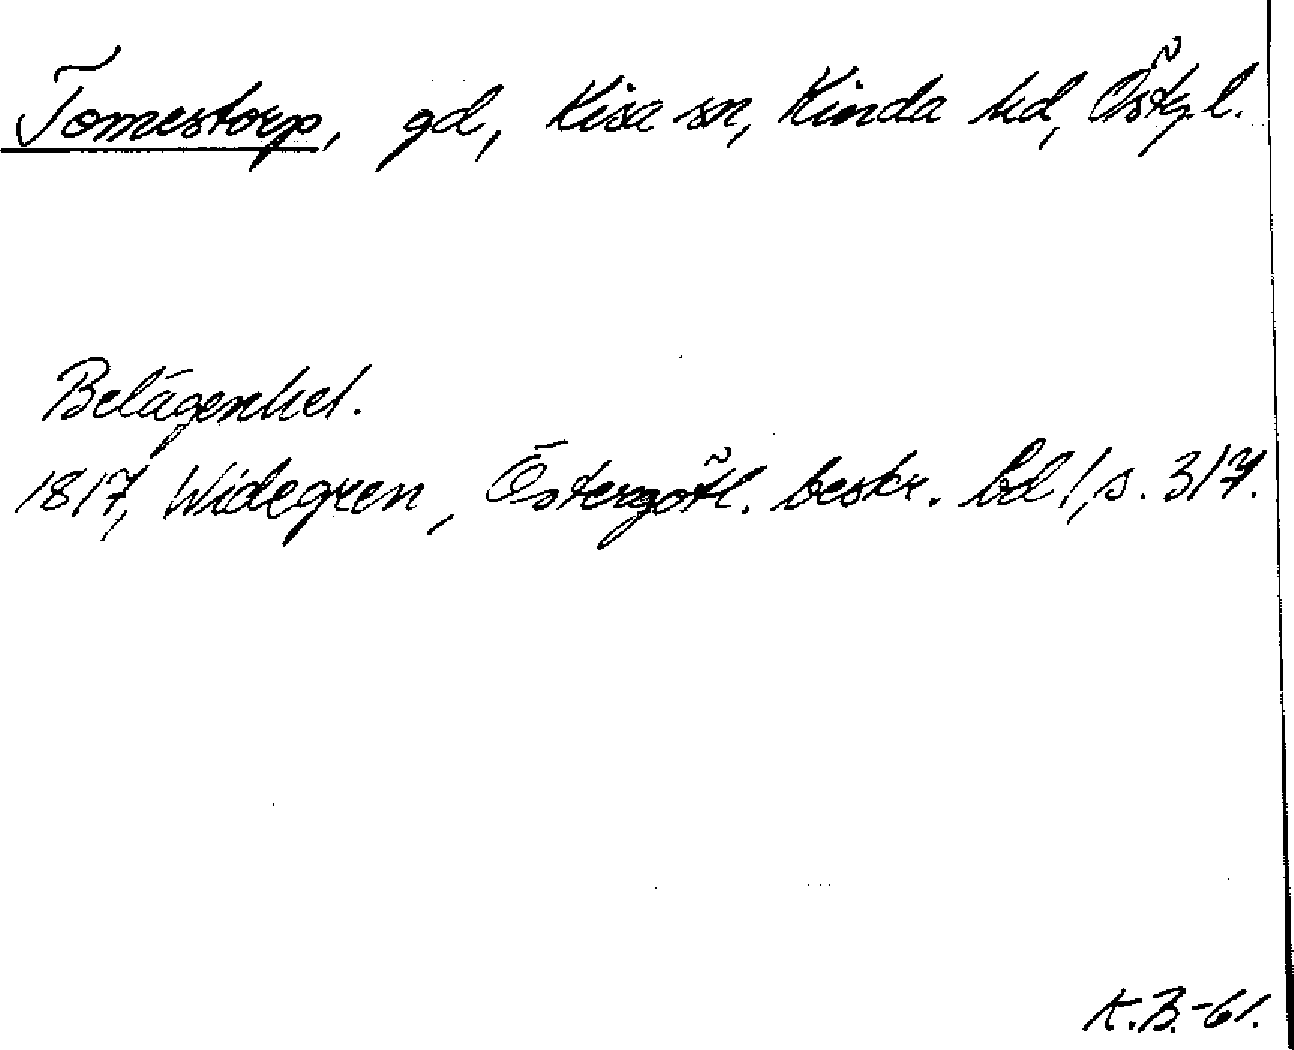 Tomestorp, gd, Kisa sn, Kinda hd, Östg l.
Belägenhet.
1817, Widegren, Östergötl. beskr. bd 1, s. 317.
K.B.-61.